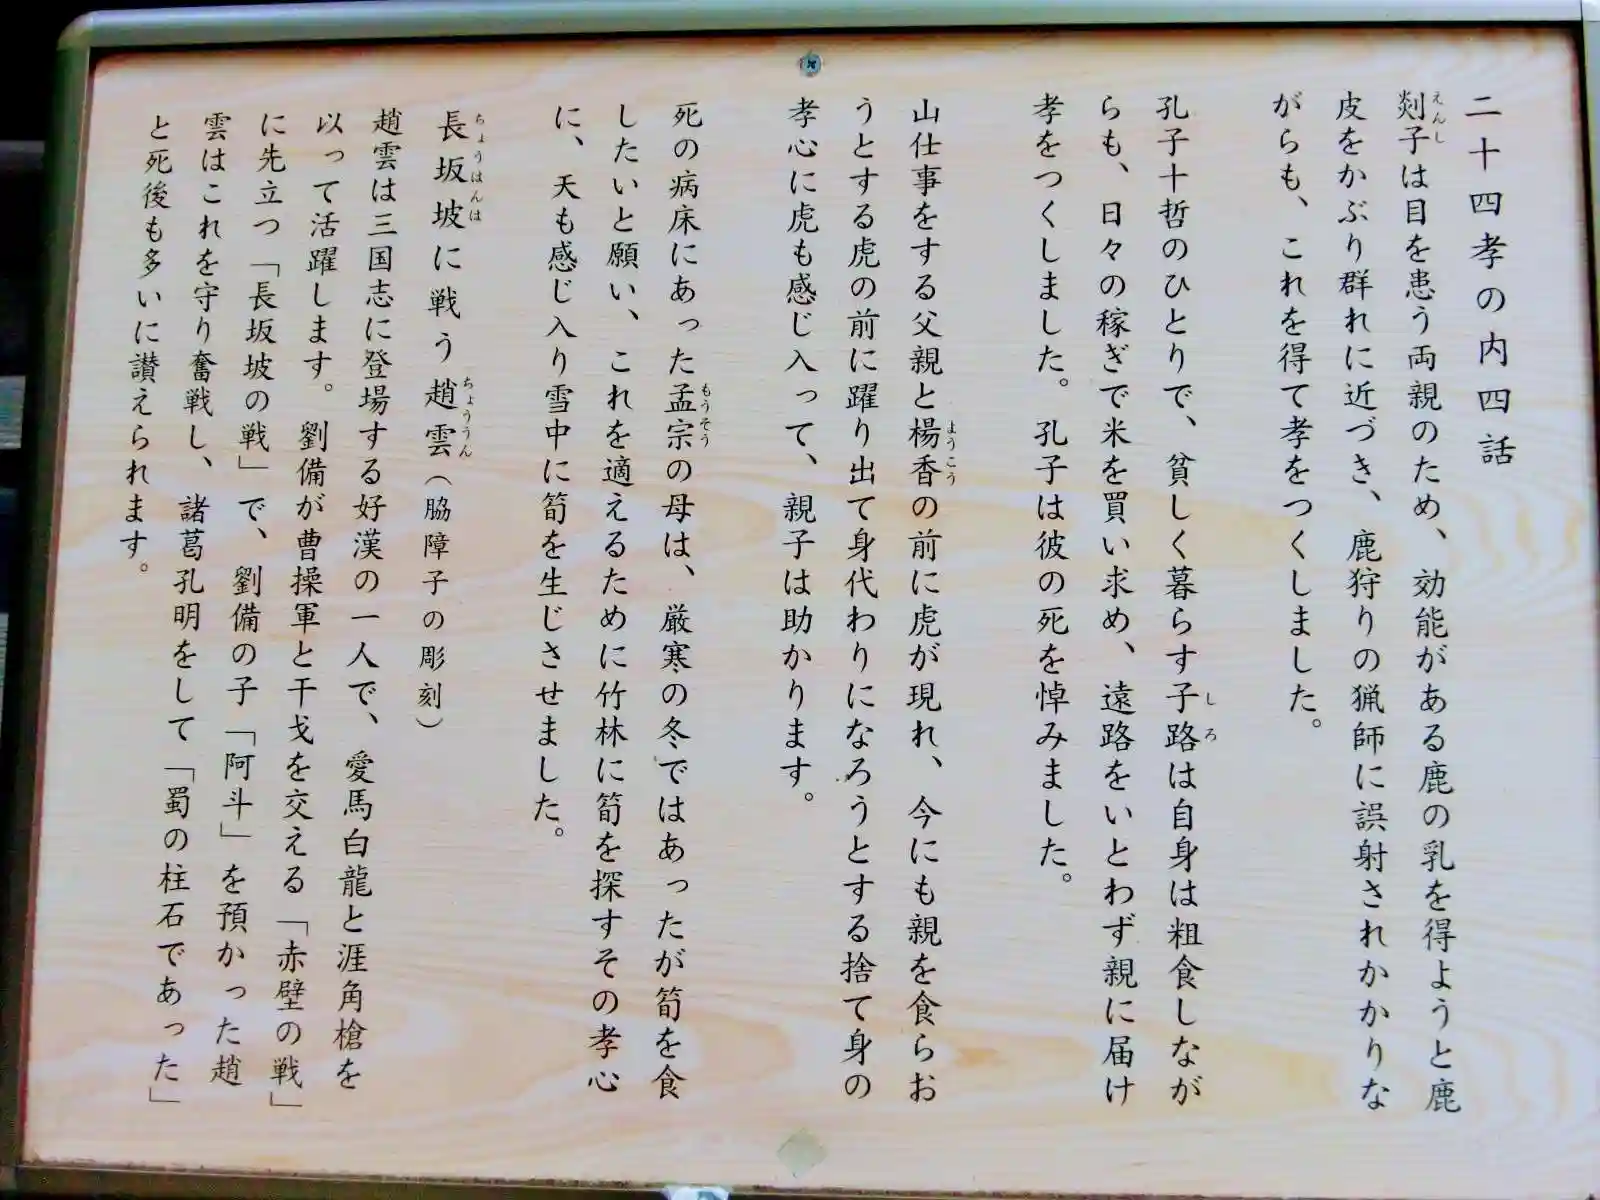 二十四孝の内四話
剡子は目を患う両親のため、効能がある鹿の乳を得ようと鹿
皮をかぶり群れに近づき、鹿狩りの猟師に誤射されかかりな
がらも、これを得て孝をつくしました。
孔子十哲のひとりで、貧しく暮らす子路は自身は粗食しなが
らも、日々の稼ぎで米を買い求め、遠路をいとわず親に届け
孝をつくしました。孔子は彼の死を悼みました。
山仕事をする父親と楊香の前に虎が現れ、今にも親を食らお
うとする虎の前に躍り出て身代わりになろうとする捨て身の
孝心に虎も感じ入って、親子は助かります。
死の病床にあった孟宗の母は、厳寒の冬ではあったが筍を食
したいと願い、これを適えるために竹林に筍を探すその孝心
に、天も感じ入り雪中に筍を生じさせました。
長坂坡に戦う趙雲（脇障子の彫刻）
趙雲は三国志に登場する好漢の一人で、愛馬白龍と涯角槍を
以って活躍します。劉備が曹操軍と干戈を交える「赤壁の戦」
に先立つ「長坂坡の戦」で、劉備の子「阿斗」を預かった趙
雲はこれを守り奮戦し、諸葛孔明をして「蜀の柱石であった」
と死後も多いに讃えられます。